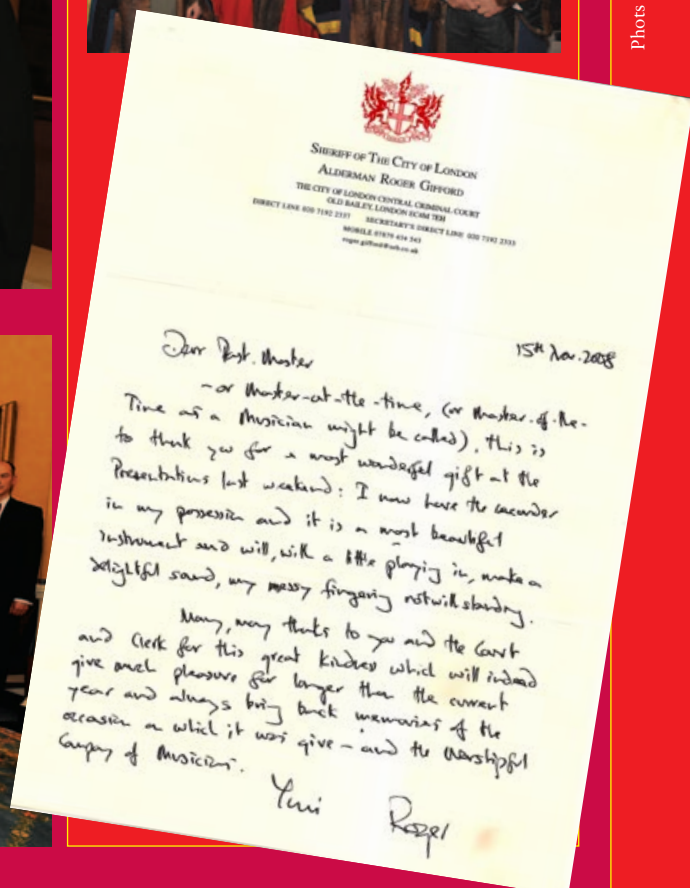 Phots
SHERIFF OF THE CITY OF LONDON
ALDERMAN ROGER GIFFORD
THE CITY OF LONDON CENTRAL CRIMINAL COURT
OLD BAILEY, LONDON EC4M 7EH
DIRECT LINE 020 7192 2337 SECRETARY'S DIRECT LINE 020 7192 2333
MOBILE
15th Nov. 2008
Dear Past. Master
- or Master-at-the-time, (or Master-of-the-
Time as a Musician might be called), this is
to thank you for a most wonderful gift at the
Presentations last weekend: I now have the recorder
in my possession and it is a most beautiful
instrument and will, with a little playing in, make a
delightful sound, my messy fingering notwithstanding.
Many, many thanks to you and the Court
and Clerk for this great kindness which will indeed
give much pleasure for longer than the current
year and always bring back memories of the
occasion on which it was give - and the Worshipful
Company of Musicians.
Yours
Roger